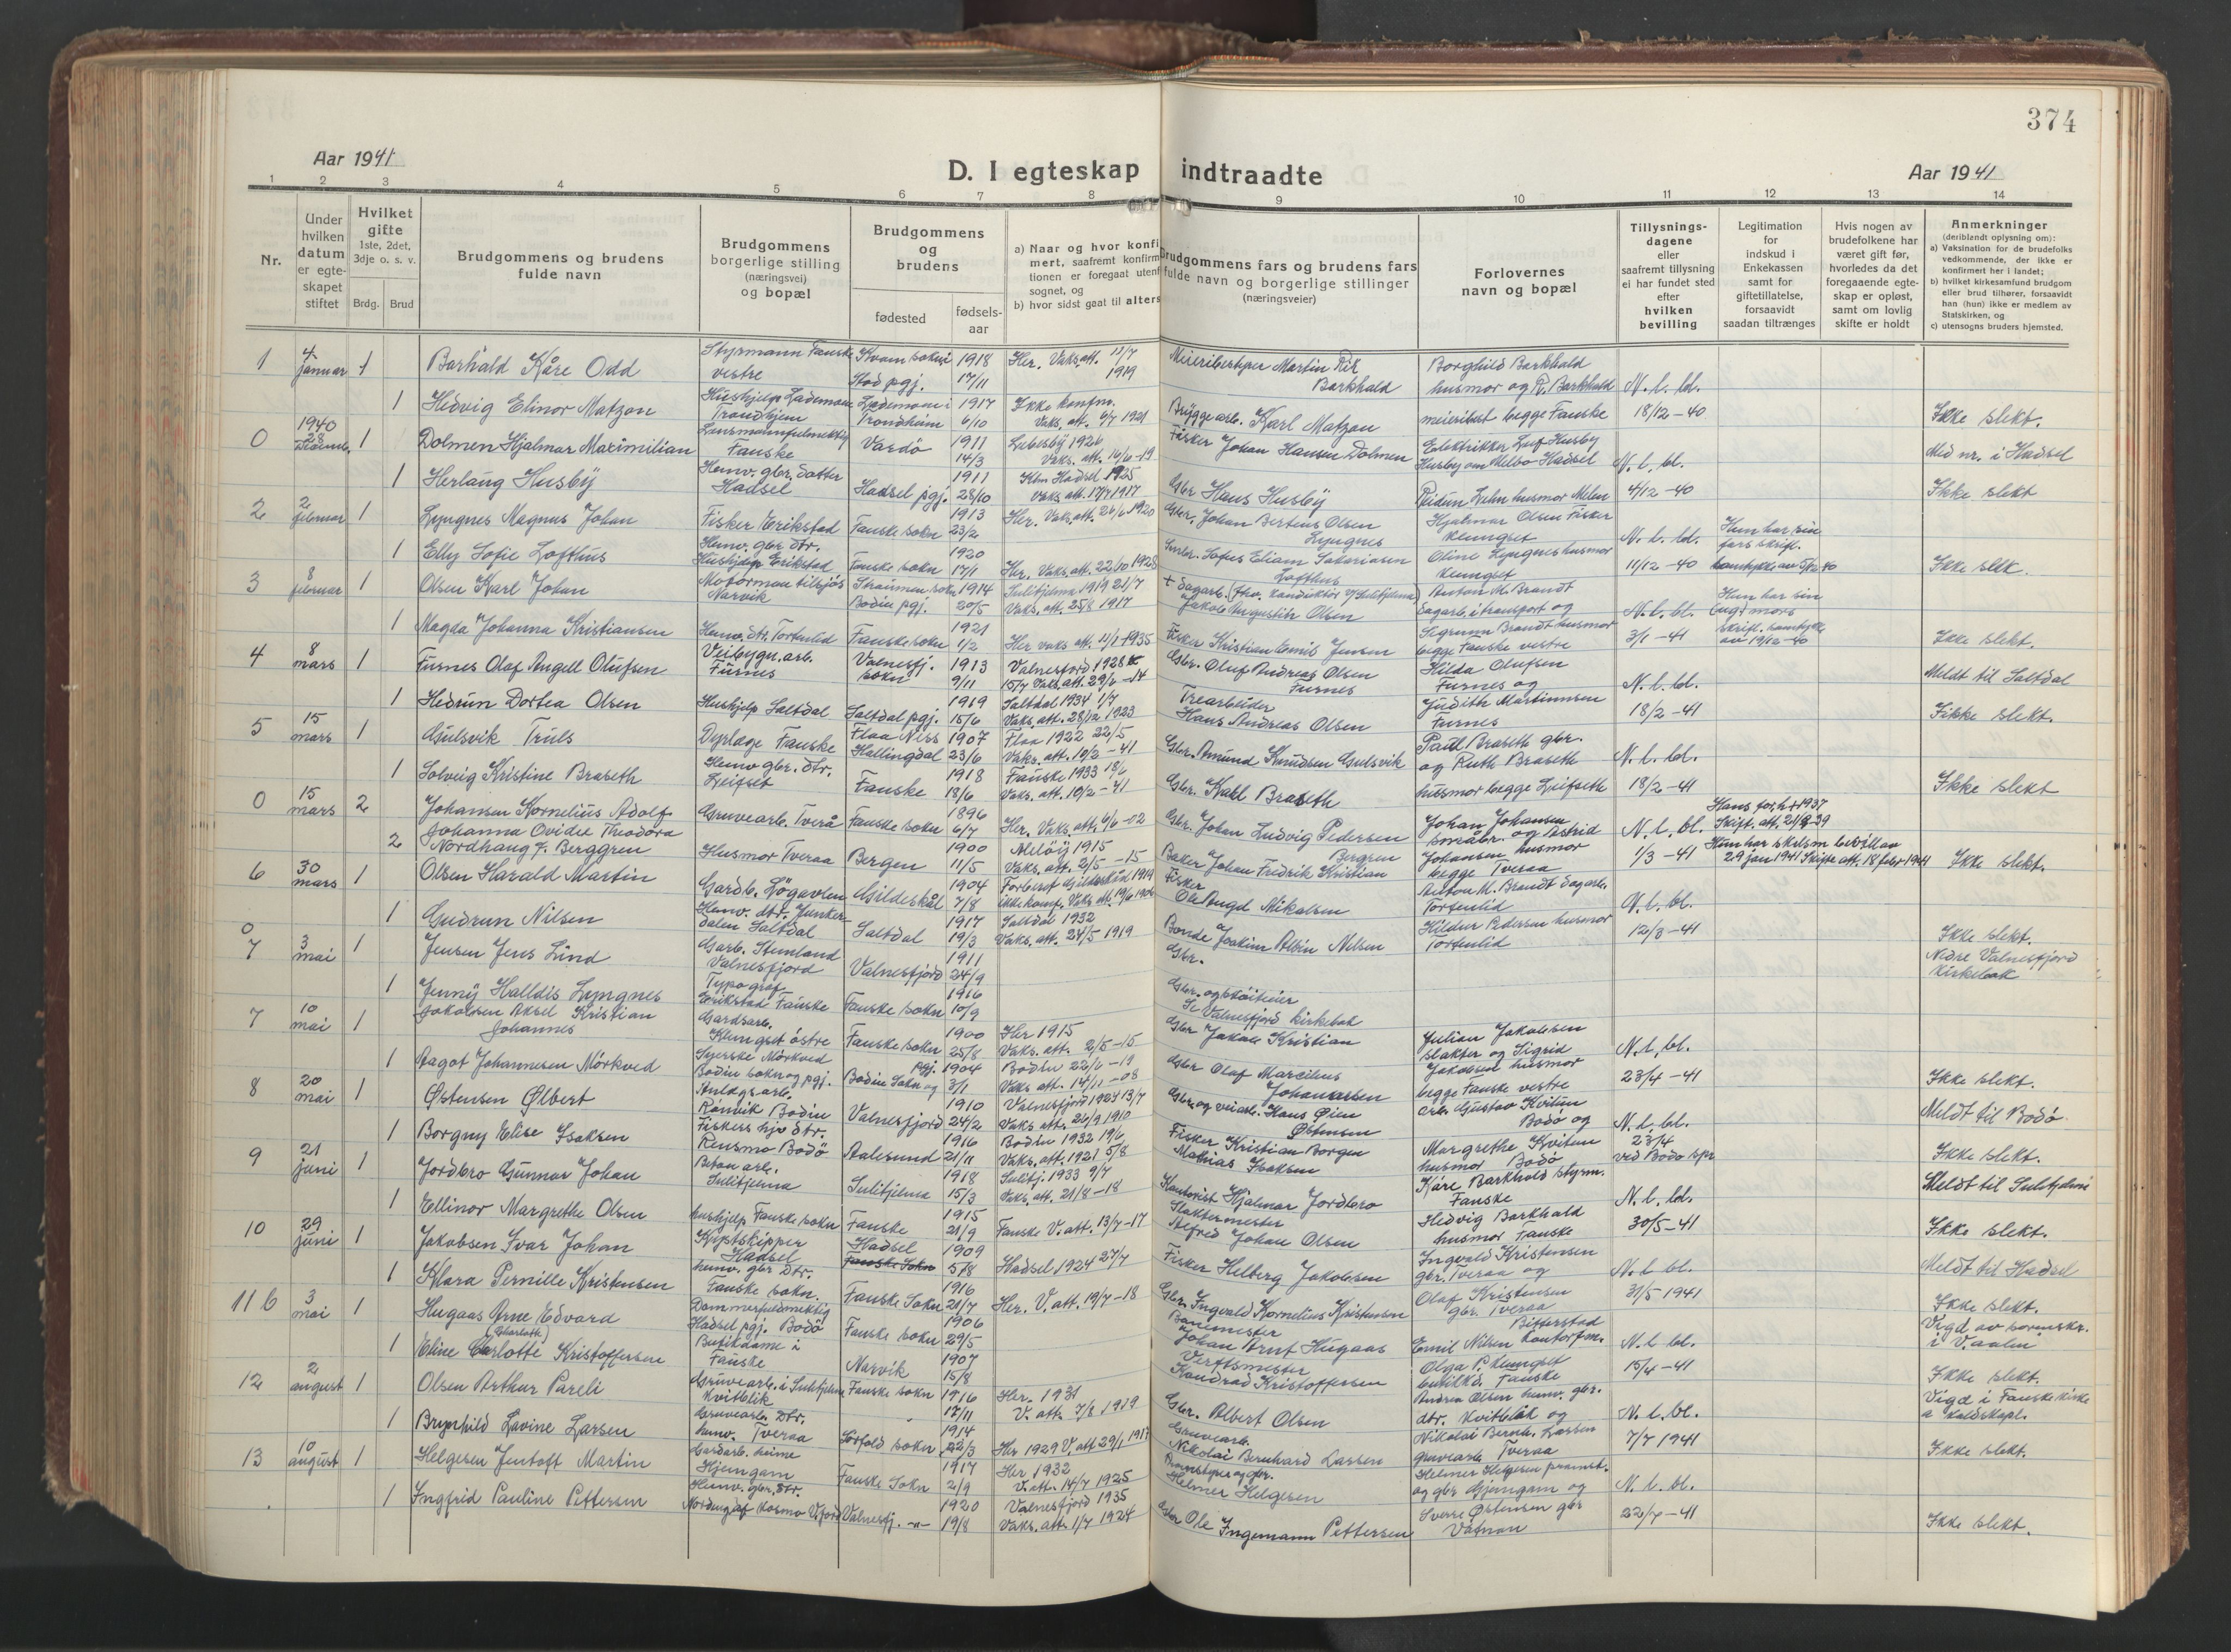 374
Aar 1941
D. I egteskap indtraadte
Aar 1941
1 2 3 4 5 6 7 8 9 10 11 12 13 14
Nr.
Under hvilken datum er egte-skapet stiftet
Hvilket gifte 1ste, 2det, 3dje o. s. v.
Brdg. Brud
Brudgommens og brudens fulde navn
Brudgommens borgerlige stilling (næringsvei) og bopæl
Brudgommens og brudens
fødested
fødsels-aar
a) Naar og hvor konfi
mert, saafremt konfirm
tionen er foregaat utenf
sognet, og
b) hvor sidst gaat til alters
Brudgommens fars og brudens fars
fulde navn og borgerlige stillinger
(næringsveier)
Forlovernes navn og bopæl
Tillysnings-dagene eller saafremt tillysning ei har fundet sted efter hvilken bevilling
Legitimation for indskud i Enkekassen samt for giftetillatelse, forsaavidt saadan tiltrænges
Hvis nogen av brudefolkene har været gift før, hvorledes da det foregaaende egte-skap er opløst, samt om lovlig skifte er holdt
Anmerkninger
(deriblandt oplysning om):
a) Vaksination for de brudefolks vedkommende, der ikke er konfirmert her i landet;
b) hvilket kirkesamfund brudgom eller brud tilhører, forsaavidt han (hun) ikke er medlem av Statskirken, og
c) utensogns bruders hjemsted.
1 4 januar 1 Barhald Kåre Odd Styrmann Fauske vestre Kvam sokn i Stod pgj. 1918 17/11 Her. Vaks. att. 11/7 1919 Martin Barkhald Borghild Barkhald husmor og Barkhald N. l. bl.
1 Hedvig Elinor Matzon Hushjelp Lademoen Trondhjem Lademoen i Trondheim 1917 6/10 Ikke konfm. Vaks. att. 6/7 1921 Bryggearb. Karl Matzon begge Fauske 18/12-40 Ikke slekt.
0 1940 28 1 Dolmen Hjalmar Maximilian Lensmannfulmektig Fauske Vardø 1911 14/3 Lebesby 1926 Vaks. att. 16/6-19 Fisker Johan Hansen Dolmen Husby N. l. bl. Med nr. i Hadsel
1 Herlaug Husby Hemv. gbr. datter Hadsel Hadsel pgj. 1911 28/10 Hadsel 1925 Vaks. att. 17/7 1917 Gbr Hans Husby husmor 4/12-40 Ikke slekt
2 2 februar 1 Lyngnes Magnus Johan Fisker Erikstad Fauske sokn 1913 23/2 Her. Vaks. att. 26/6 1920 Gbr. Johan Bertens Olsen Lyngnes Hjalmar Olsen Fisker Klungset N. l. bl. Hun har sin fars skrifl.
1 Elly Sofie Lofthus Hemv. gbr. dtr. Hushjelp Erikstad Fauske sokn 1920 17/1 Her. Vaks. att. 22/10 1928 Sofus Eliam Sakariasen Lofthus Oline Lyngnes husmor Klungset 11/12-40 samtykke av Ikke slek.
3 8 februar 1 Olsen Karl Johan Motorman tilsjøs Narvik Straumen sokn Bodin pgj. 1914 20/5 Sulitjelma 21/7 Vaks. att. 25/8 1917 Jakob Augustin Olsen Anton M. Brandt dagarb. i transport og N. l. bl. Hun har sin mors
1 Magda Johanna Kristiansen Hemv. dtr. Tortenlid Fauske sokn 1921 1/2 Her vaks. att. 11/1-1935 Fisker Kristian Emil Jensen Sigrunn Brandt husmor begge Fauske vestre 3/1-41 skrifl. samtykke av 19/12-40 Ikke slekt.
4 8 mars 1 Furnes Olaf Angell Olufsen Veibygn. arb. Furnes Valnesfj. sokn 1913 9/11 Valnesfjord 1928 15/7 Vaks. att. 29/6-14 Gbr. Oluf Andreas Olsen Furnes Hilda Olufsen Furnes og N. l. bl. Meldt til Saltdal
1 Hedrun Dortea Olsen Hushjelp Saltdal Saltdal pgj. 1919 15/6 Saltdal 1934 1/7 Vaks. att. 28/12 1923 Trearbeider Hans Andreas Olsen Judith Martinusen Furnes 18/2-41 Ikke slekt.
5 15 mars 1 Gulsvik Truls Dyrlæge Fauske Flaa Ness Hallingdal 1907 23/6 Flaa 1922 22/5 Vaks. att. 10/2-41 Gbr. Amund Knudsen Gulsvik Paul Braseth gbr. og Ruth Braseth N. l. bl.
1 Solveig Kristine Braseth Hemv gbr. dtr. Leifset Fauske 1918 18/6 Fauske 1933 18/6 Vaks. att. 10/2-41 Gbr. Karl Braseth husmor begge Leifseth 18/2-41 Ikke slekt
0 15 mars 2 Johansen Kornelius Adolf Gruvearb. Tverå Fauske sokn 1896 6/7 Her. Vaks. att. 6/6-02 Gbr. Johan Ludvig Pedersen Johan Johansen småbr. og Astrid N. l. bl. Hans forh. + 1937 Skift. att. 21/8-39
2 Johanna Ovidie Theodora Nordhaug f. Berggren Husmor Tveraa Bergen 1900 11/5 Meløy 1915 Vaks. att. 2/5-15 Baker Johan Fredrik Kristian Bergren Johansen husmor begge Tveraa 1/3-41 Hun har skilsm. bevill av 29 jan 1941 Skifte att. 18 febr 1941 Ikke slekt.
6 30 mars 1 Olsen Harald Martin Gardb. Løgavlen Gildeskål 1904 7/8 Forberet Gildeskål 1919 ikke konf. Vaks. att. 19/6 1906 Fisker Ole Angd Mikalsen Anton M. Brandt dagarb. Tortenlid N. l. bl.
1 Gudrun Nilsen Hemv. dtr. Junkerdalen Saltdal Saltdal 1917 19/3 Saltdal 1932 Vaks. att. 24/5 1919 Bonde Joakim Albin Nilsen Hildur Pedersen husmor Tortenlid 12/3-41 Ikke slekt.
0 7 3 mai 1 Jensen Jens Lind Garb. Stemland Valnesfjord Valnesfjord 1911 24/9 Gbr. Nedre Valnesfjord kirkebok
1 Jenny Halldis Lyngnes Typograf Erikstad Fauske Fauske sokn 1916 10/9 Gbr. og skøiteier Se Valnesfjord kirkebok
7 10 mai 1 Jakobsen Aksel Kristian Johannes Gardsarb. Klungset østre Fauske sokn 1900 25/8 Her 1915 Vaks. att. 2/5-15 Gbr Jakob Kristian Julian Jakobsen slakter og Sigrid N. l. bl.
1 Aagot Johannesen Mörkved Syerske Mörkved Bodin sokn og pgj. Bodin Sokn og pgj. 1904 3/1 Bodin 22/6-19 Vaks att. 14/11-08 Gbr Olaf Marcelius Johannessen Jakobsen husmor begge Fauske vestre 23/4-41 Ikke slekt.
8 20 mai 1 Østensen Ølbert Anlægsarb. Rønvik Bodin Valnesfjord 1910 24/2 Valnesfjord 1924 13/7 Vaks att. 26/9 1910 Gbr. og veiarb. Hans Øien Østensen arb. Gustav Kvitun Bodø og N. l. bl. Meldt til Bodø.
1 Borgny Elise Isaksen Fiskers hjv dtr. Rensmo Bodö Aalesund 1916 21/11 Bodin 1932 19/6 Vaks. att. 1921 5/8 Fisker Kristian Borgen Mathias Isaksen Margrethe Kvitun husmor Bodø 23/4 ved Bodø spr Ikke slekt.
9 21 juni 1 Jordbro Gunnar Johan Beton arb. Sulitjelma Sulitjelma 1918 15/3 Sulitj. 1933 9/7 Vaks. att. 21/8-18 Hjalmar Jordbro Kåre Barkhald styrm. Fauske N. l. bl. Meldt til Sulitjelma
1 Ellinor Margrethe Olsen hushjelp Fauske sokn Fauske 1915 21/9 Fauske V. att. 13/7-17 Slaktermester Alfred Johan Olsen Hedvig Barkhald husmor Fauske 30/5-41 Ikke slekt.
10 29 juni 1 Jakobsen Ivar Johan Kystskipper Hadsel Hadsel Fauske Sokn 1909 5/8 Hadsel 1924 27/7 Fisker Hilberg Jakobsen Ingvald Kristensen gbr. Tveraa og N. l. bl. Meldt til Hadsel
1 Klara Pernille Kristensen hemv. gbr dtr. Fauske sokn. Fauske Sokn 1916 21/7 Her. V. att. 19/7-18 Gbr. Ingvald Kornelius Kristensen Olaf Kristensen gbr. Tveraa 31/5 1941 Ikke slekt.
11 b 3 mai 1 Hugaas Arne Edvard Dommerfuldmektig Hadsel pgj. Bodö Fauske sokn 1906 29/5 Banemester Johan Arnt Hugaas Emil Nilsen Kontorfm. N. l. bl. Vigd av sorenskr. i V.aalen
1 Eline Carlotte (Charlotte) Kristoffersen Butikdame i Fauske Narvik 1907 15/8 Verftsmester Kondrad Kristoffersen Olga P. Klungset butikkd. Fauske 15/4-41 Ikke slekt.
12 2 august 1 Olsen Arthur Pareli Gruvearb. i Sulitjelma Kvitblik Fauske sokn 1916 17/11 Her. 1931 V. att. 7/8 1919 Gbr. Albert Olsen Andrea Olsen hemv. gbr. dtr. Kvitblik og N. l. bl. Vigd i Fauske kirke
1 Brynhild Lovine Larsen Gruvearb. dtr. hemv. Tveraa Sørfold sokn 1914 22/3 Her 1929 V. att 29/1 1917 Gruvearb. Nikolai Bernhard Larsen Nikolai Bernh. Larsen gruvearb. Tveraa 7/7 1941 Ikke slekt.
13 10 august 1 Helgesen Jentoft Martin Gardarb. heime Hjemgam Fauske Sokn 1917 2/9 Her 1932 V. att. 14/7 1925 Helmer Helgesen Helmer Helgesen og gbr Gjemgam og N. l. bl.
1 Ingfrid Pauline Pettersen Hemv. gbr. dtr. Kosmo V.fjord Valnesfj. -"- 1920 19/8 Valnesfjord 1935 Vaks. att. 1/7 1924 Gbr Ole Ingemann Pettersen Sverre Østensen gbr Vatnan 22/7-41 Ikke slekt.